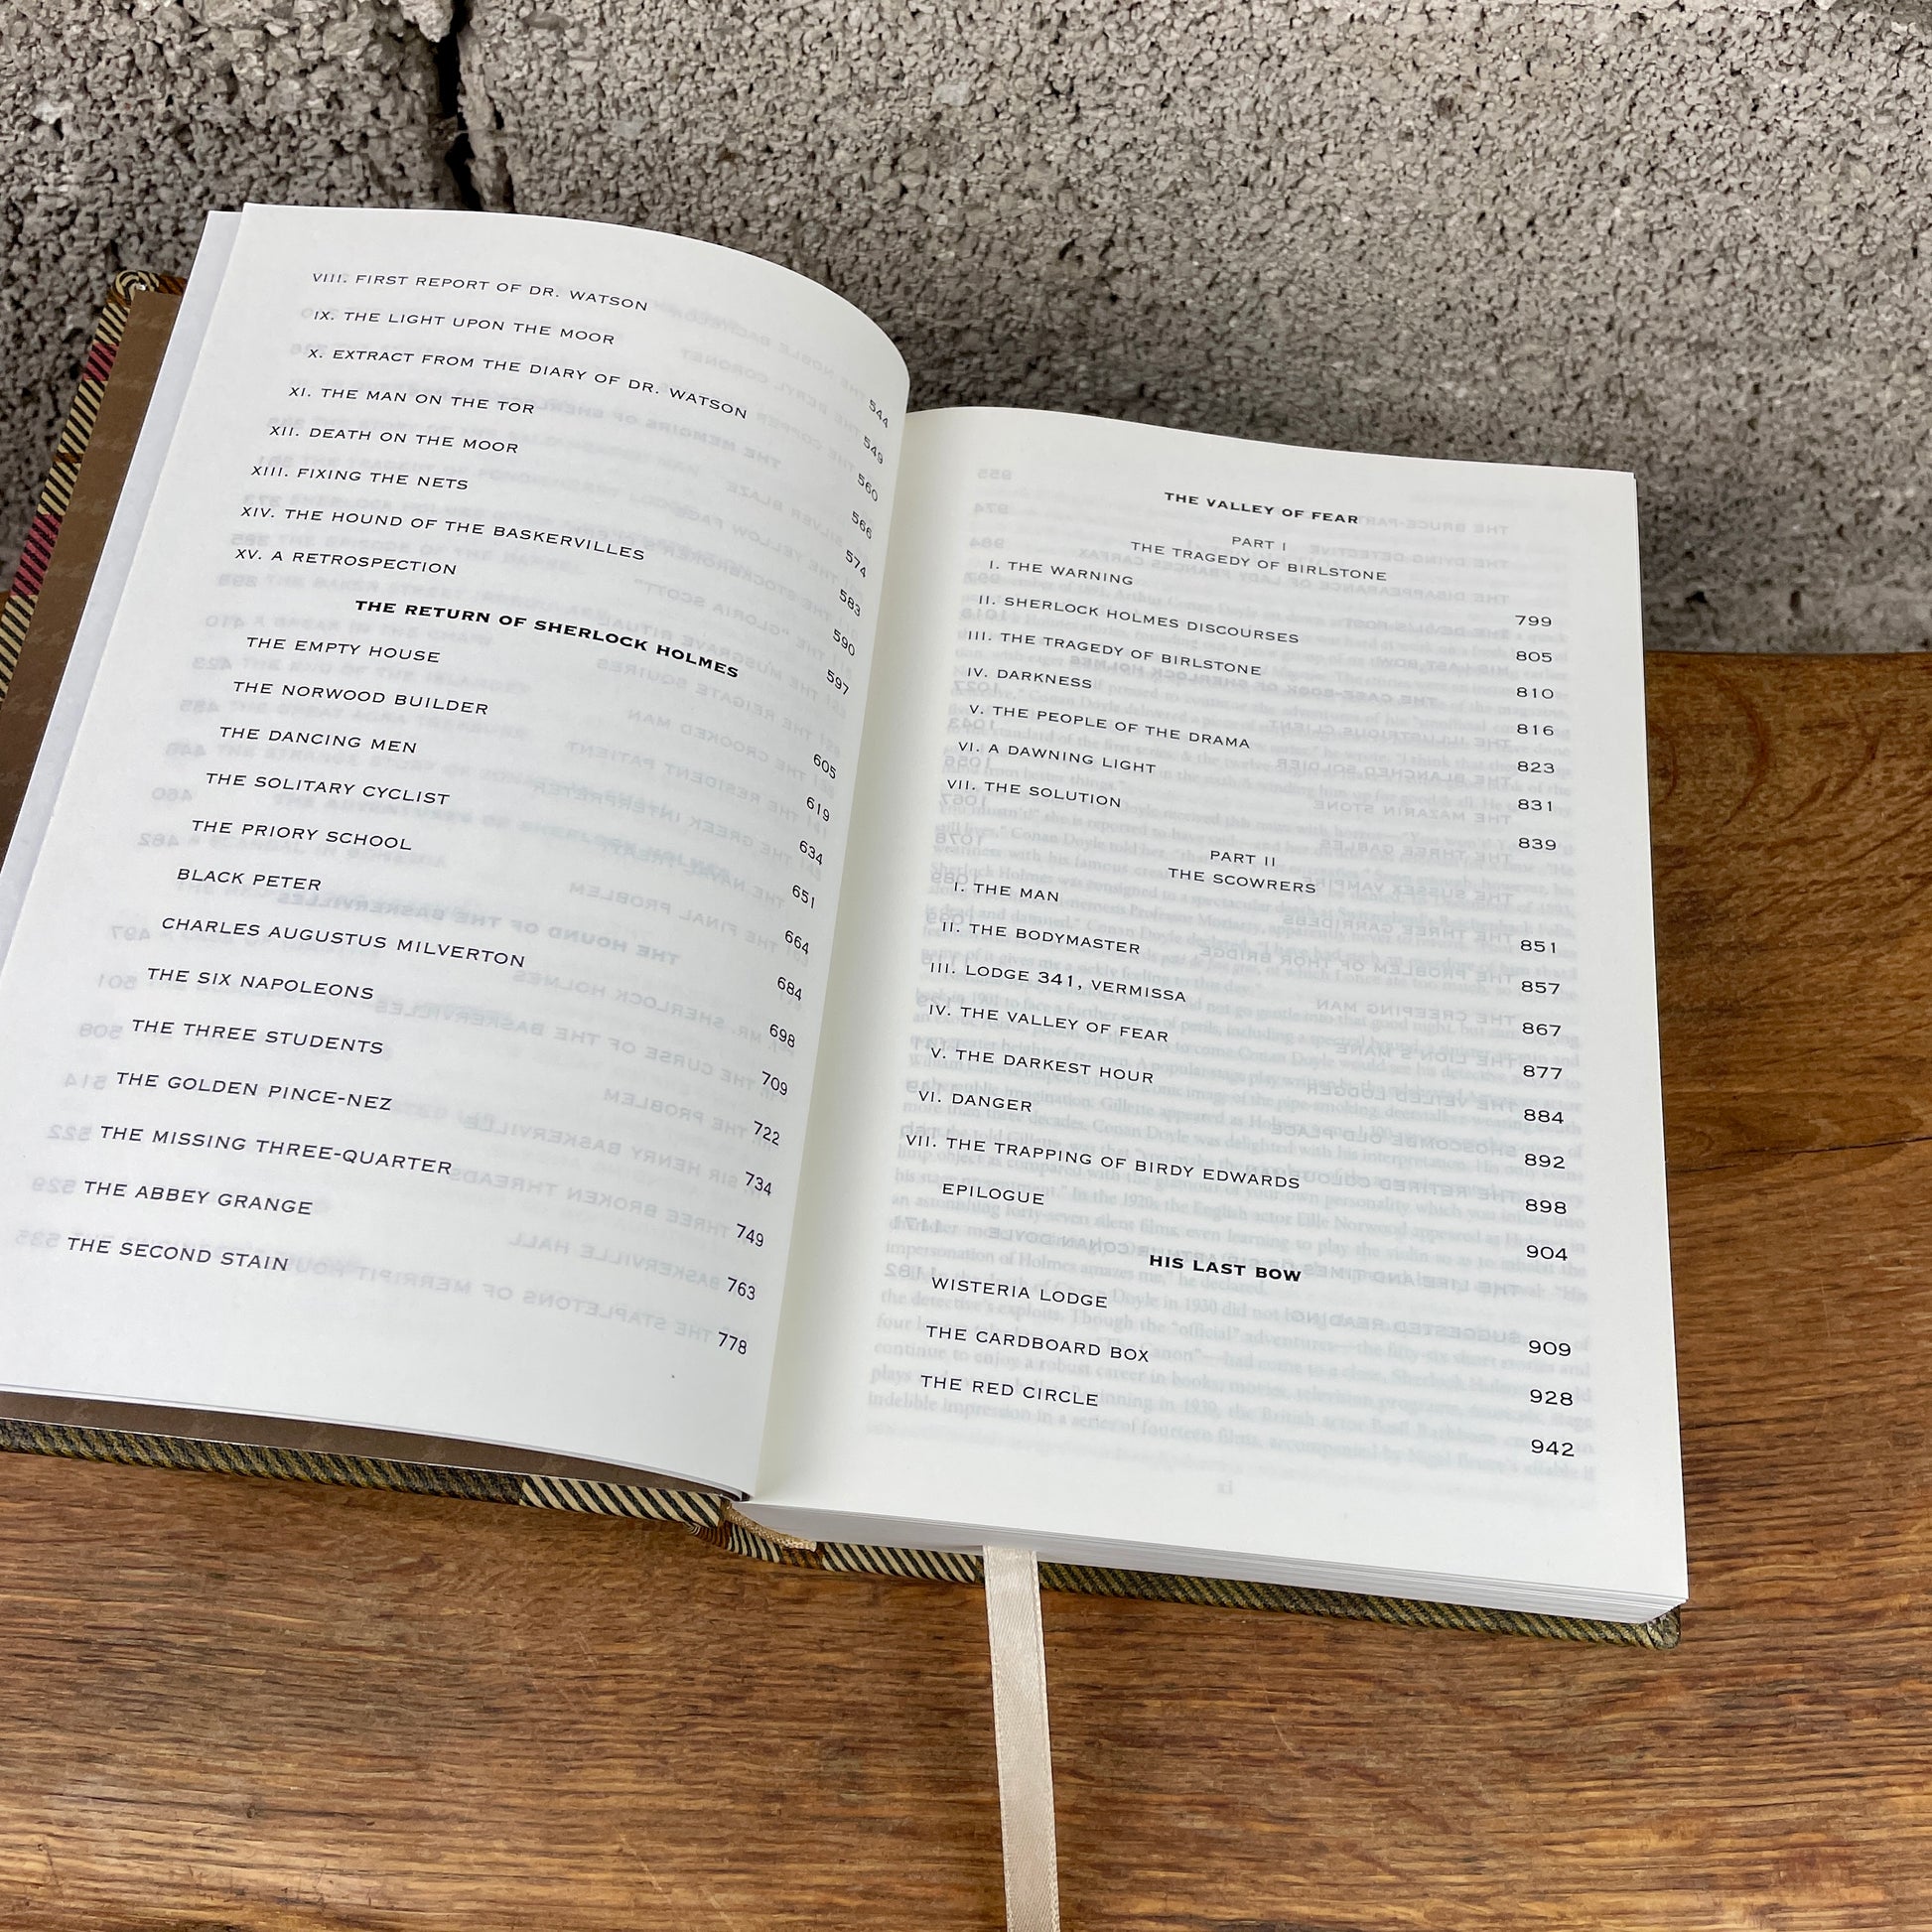 VIII. FIRST REPORT OF DR. WATSON 544
IX. THE LIGHT UPON THE MOOR 549
X. EXTRACT FROM THE DIARY OF DR. WATSON 560
XI. THE MAN ON THE TOR 566
XII. DEATH ON THE MOOR 574
XIII. FIXING THE NETS 583
XIV. THE HOUND OF THE BASKERVILLES 590
XV. A RETROSPECTION 597
THE RETURN OF SHERLOCK HOLMES
THE EMPTY HOUSE 605
THE NORWOOD BUILDER 619
THE DANCING MEN 634
THE SOLITARY CYCLIST 651
THE PRIORY SCHOOL 664
BLACK PETER 684
CHARLES AUGUSTUS MILVERTON 698
THE SIX NAPOLEONS 709
THE THREE STUDENTS 722
THE GOLDEN PINCE-NEZ 734
THE MISSING THREE-QUARTER 749
THE ABBEY GRANGE 763
THE SECOND STAIN 778
THE VALLEY OF FEAR
PART I
THE TRAGEDY OF BIRLSTONE
I. THE WARNING 799
II. SHERLOCK HOLMES DISCOURSES 805
III. THE TRAGEDY OF BIRLSTONE 810
IV. DARKNESS 816
V. THE PEOPLE OF THE DRAMA 823
VI. A DAWNING LIGHT 831
VII. THE SOLUTION 839
PART II
THE SCOWRERS
I. THE MAN 851
II. THE BODYMASTER 857
III. LODGE 341, VERMISSA 867
IV. THE VALLEY OF FEAR 877
V. THE DARKEST HOUR 884
VI. DANGER 892
VII. THE TRAPPING OF BIRDY EDWARDS 898
EPILOGUE 904
HIS LAST BOW
WISTERIA LODGE 909
THE CARDBOARD BOX 928
THE RED CIRCLE 942